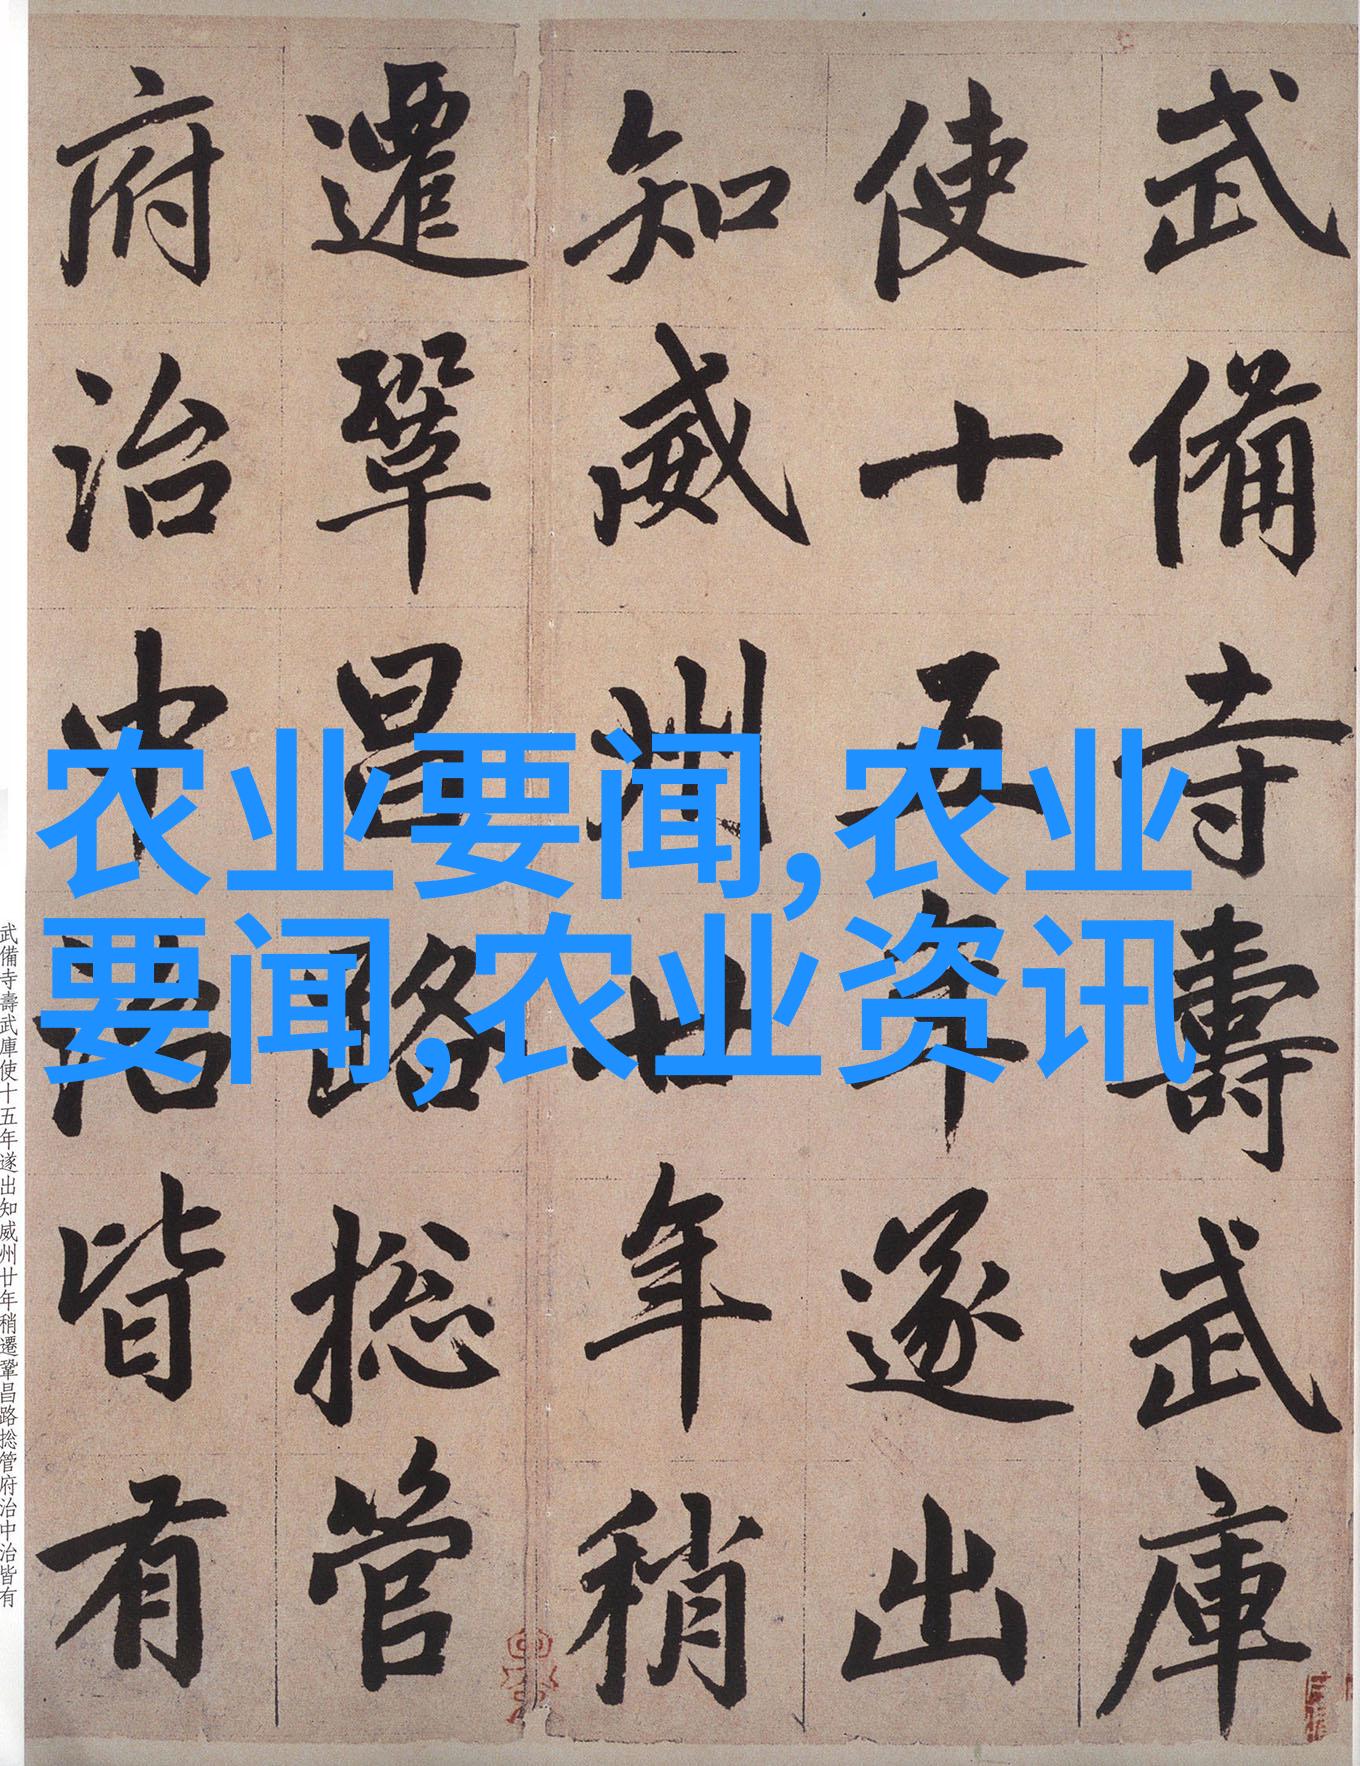 武備寺壽武庫
使十五年遂出
知威州廿年稍
遷鞏昌路捴管
府治中治皆有
农业要闻,农业
要闻,农业资讯
武備寺壽武庫使十五年遂出知威州廿年稍遷鞏昌路捴管府治中治皆有